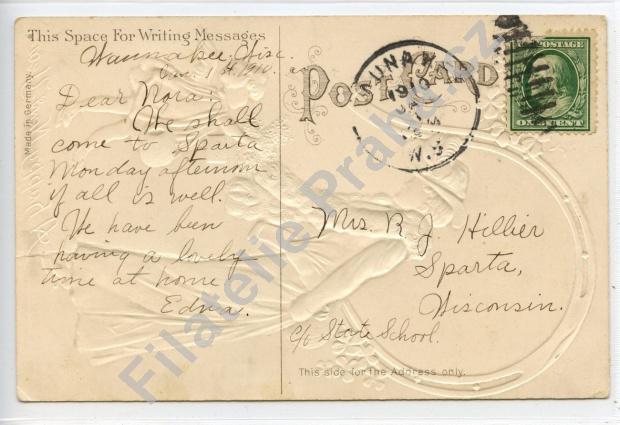 This Space For Writing Messages
Waunakee, Wisc.
1st, 1910.
Dear Nora:
We shall
come to Sparta
Monday afternoon
if all is well.
We have been
having a lovely
time at home
Edna.
Made in Germany.
POST CARD
1910
WIS
U.S. POSTAGE
ONE CENT
Mrs. R. J. Hillier
Sparta,
Wisconsin.
c/o State School.
This side for the Address only.
Filatelie Praha.cz